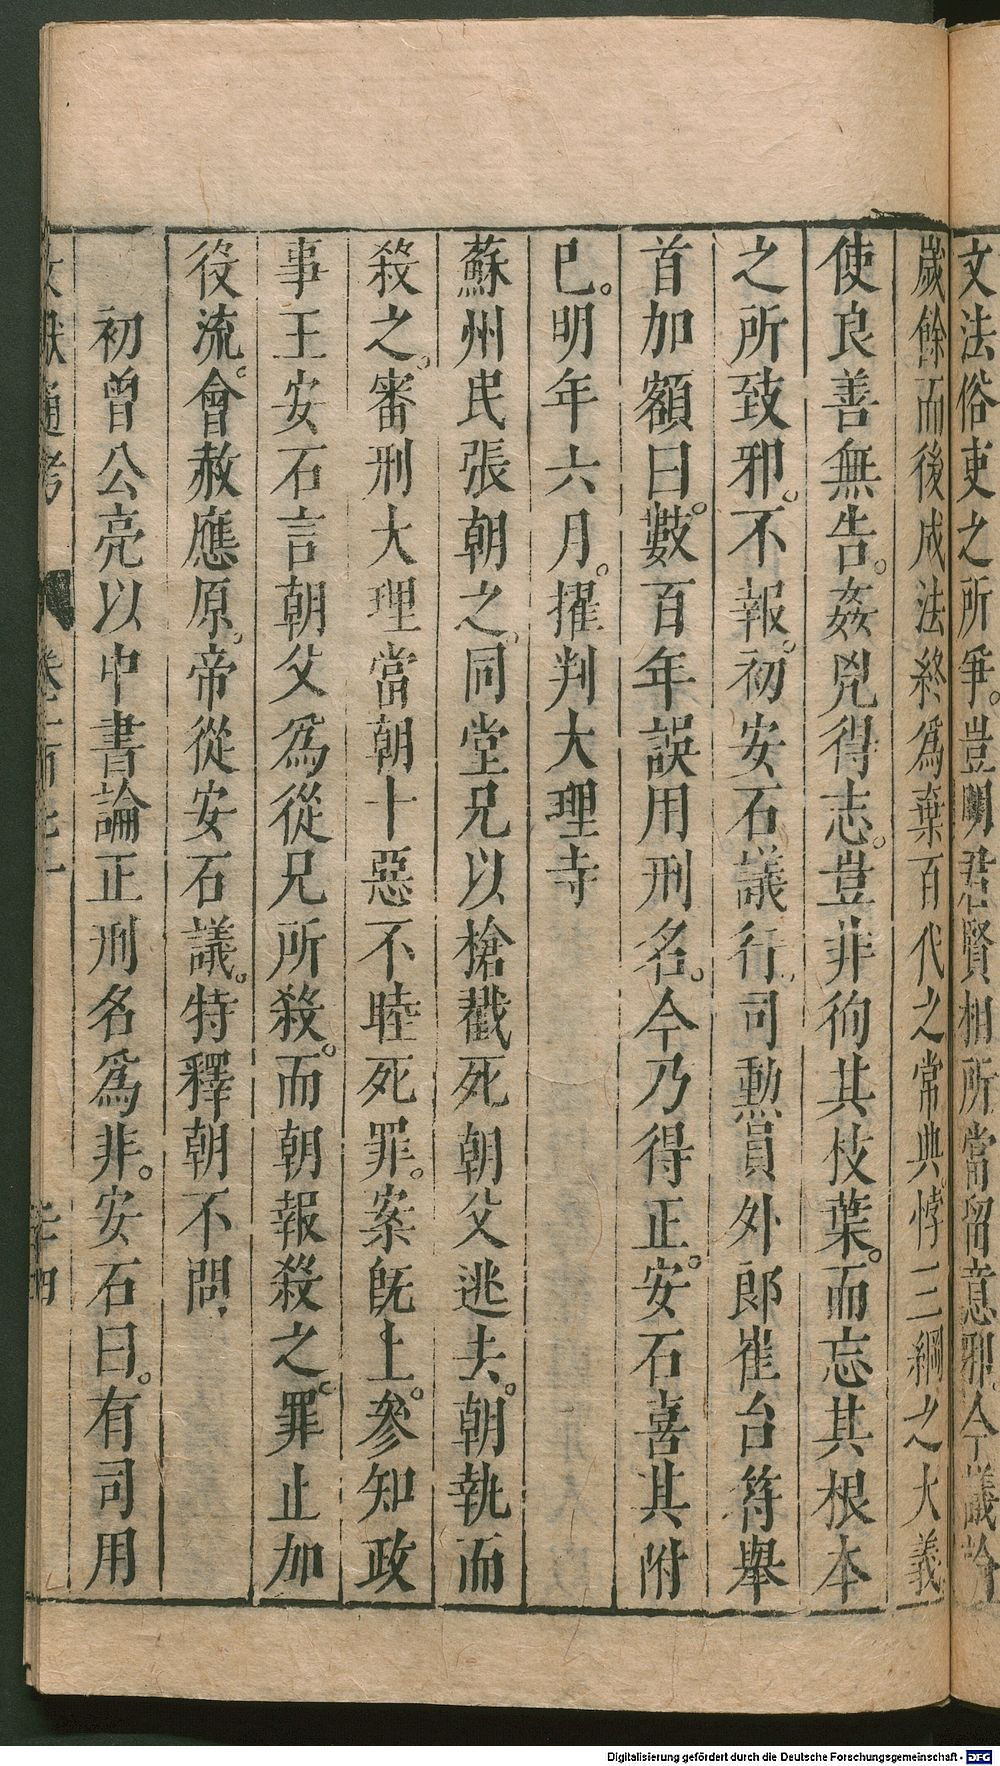 文法俗吏之所爭。豈明君賢相所當留意邪。今議於
歲餘而後成法終爲棄百代之常典。悖三綱之大義
使良善無告。姦兇得志。豈非徇其枝葉。而忘其根本
之所致邪。不報。初安石議行。司勲員外郎崔台符舉
首加額曰。數百年誤用刑名。今乃得正。安石喜其附
巳。明年六月。擢判大理寺
蘇州民張朝之。同堂兄以槍戳死朝父逃去。朝執而
殺之。審刑大理當朝十惡不睦死罪。案旣上。參知政
事王安石言朝父爲從兄所殺。而朝報殺之。罪止加
役流。會赦應原。帝從安石議。特釋朝不問
初曾公亮以中書論正刑名爲非。安石曰。有司用
文獻通考 卷一百七十 三十四
Digitalisierung gefördert durch die Deutsche Forschungsgemeinschaft - DFG